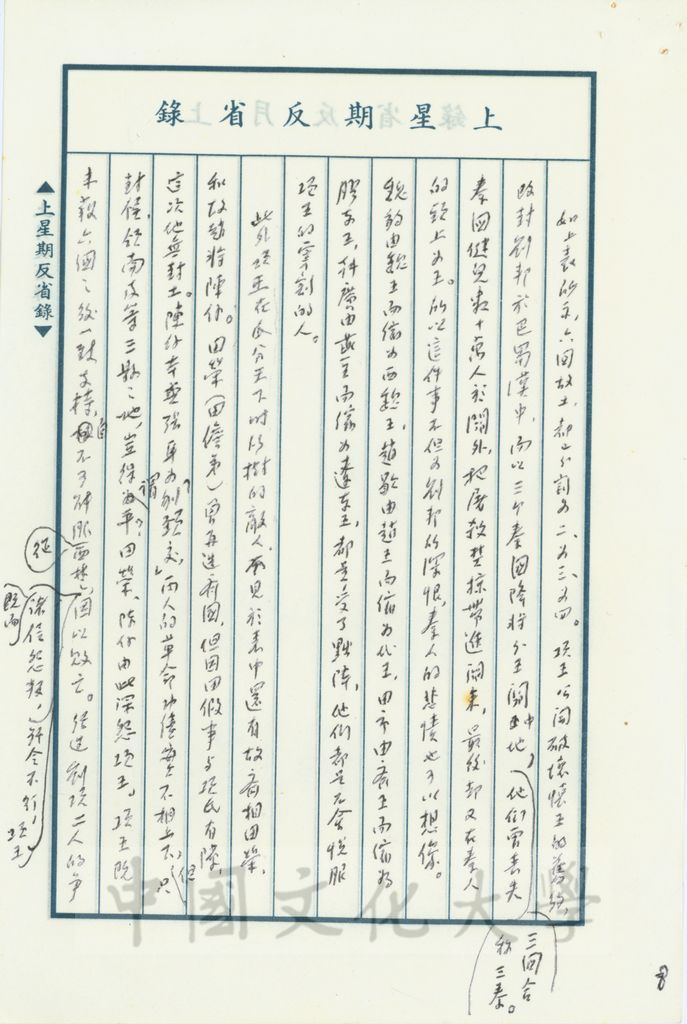 上星期反省錄
如上表所示，六國故土，都分割為二、為三、為四。項王公開破壞懷王的舊約，
改封劉邦於巴蜀漢中，而以三個秦國降將分王關中地，他們曾喪失
三國合稱三秦。
秦國健兒數十萬人於關外，把屠殺焚掠帶進關來，最後卻又在秦人
的頭上為王。所以這件事不但為劉邦所深恨，秦人的悲憤也可以想像。
魏豹由魏王而徙為西魏王，趙歇由趙王而徙為代王，田市由齊王而徙為
膠東王，韓廣由燕王而徙為遼東王，都是受了黜降，他們都是不會悅服
項王的宰割的人。
此外項王在瓜分天下時所樹的敵人，而見於表中還有故齊相田榮，
和故趙將陳餘。田榮（田儋弟）曾再造齊國，但因田假事與項氏有隙，
這次他無封土。陳餘幸與張耳為刎頸交，兩人的革命功績無不相上下，但只
封侯，領南皮等三縣之地，豈得謂為平？田榮、陳餘由此深怨項王。項王既
未穀六國之後一致支持，自不可
諸侯怨叛，號令不行，項王
既而
征
因以敗亡。
劉項二人的爭
▲上星期反省錄▼
中國文化大學
8